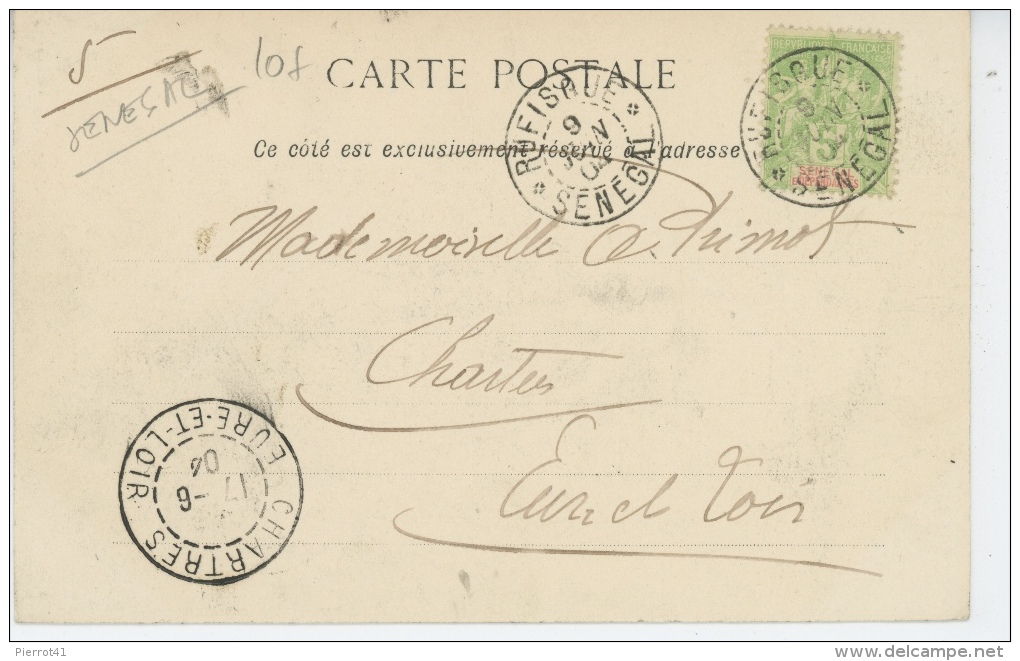 5
108
SENEGAL
CARTE POSTALE
Ce côté est exclusivement réservé à l'adresse
RUFISQUE
9
JUIN
04
SENEGAL
RUFISQUE
9
SENEGAL
REPUBLIQUE FRANCAISE
5
Mademoiselle
Chartres
Eure et Loir
CHARTRES EURE-ET-LOIR
17 -6
04
Pierrot41
www.delcampe.net